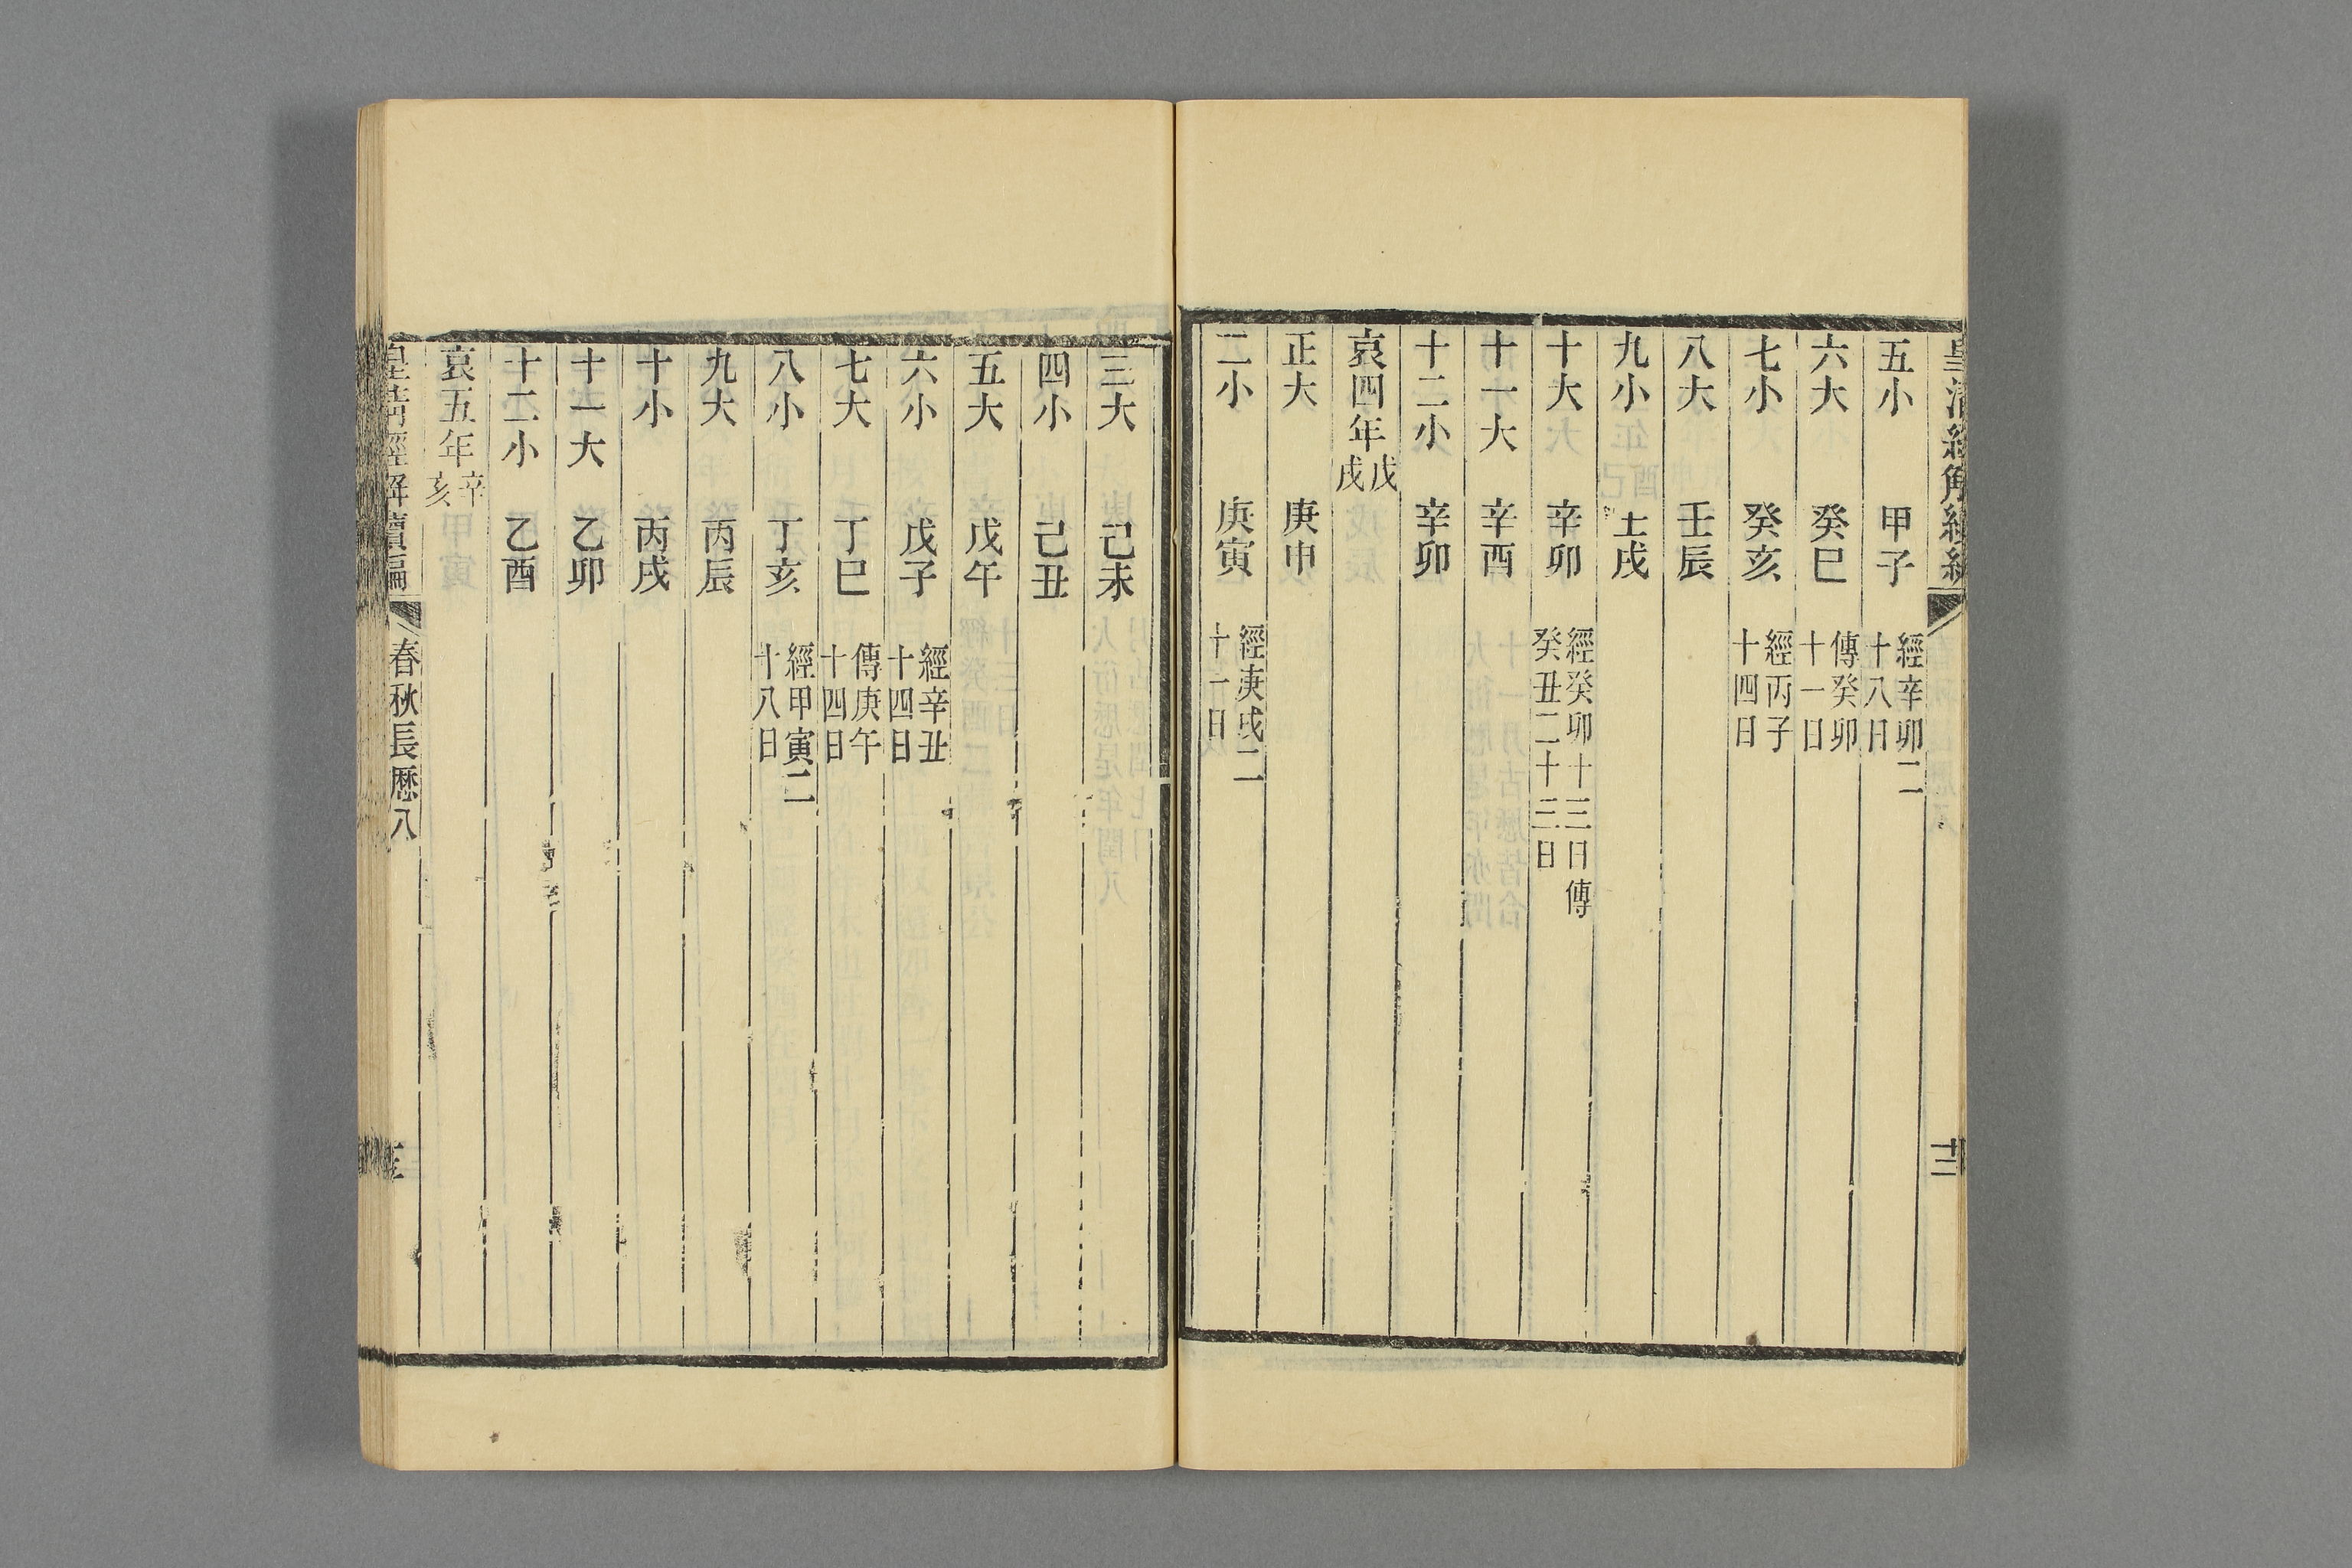 皇清經解續編
十三
五小 甲子 經辛卯二十八日
六大 癸巳 傳癸卯十一日
七小 癸亥 經丙子十四日
八大 壬辰
九小 壬戌
十大 辛卯 經癸卯十三日傳癸丑二十三日
十一大 辛酉
十二小 辛卯
哀四年戊戌
正大 庚申
二小 庚寅 經庚戌二十一日
三大 己未
四小 己丑
五大 戊午
六小 戊子 經辛丑十四日
七大 丁巳 傳庚午十四日
八小 丁亥 經甲寅二十八日
九大 丙辰
十小 丙戌
十一大 乙卯
十二小 乙酉
哀五年辛亥
皇清經解續編 春秋長歷八